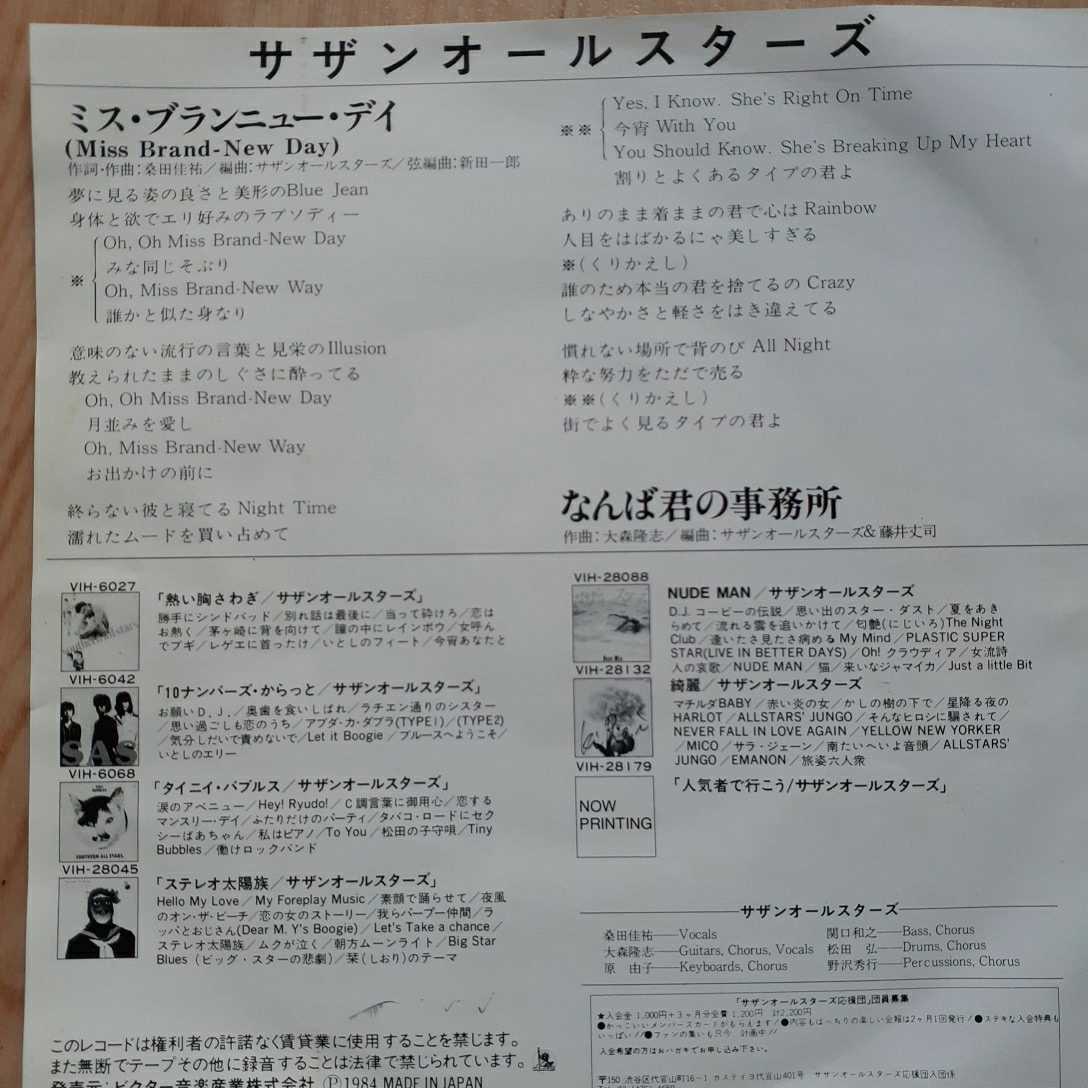 サザンオールスターズ
ミス・ブランニュー・デイ
(Miss Brand-New Day)
作詞・作曲：桑田佳祐／編曲：サザンオールスターズ／弦編曲：新田一郎
夢に見る姿の良さと美形のBlue Jean
身体と欲でエリ好みのラプソディー
※
Oh, Oh Miss Brand-New Day
みな同じそぶり
Oh, Miss Brand-New Way
誰かと似た身なり
意味のない流行の言葉と見栄のIllusion
教えられたままのしぐさに酔ってる
Oh, Oh Miss Brand-New Day
月並みを愛し
Oh, Miss Brand-New Way
お出かけの前に
終らない彼と寝てる Night Time
濡れたムードを買い占めて
※※
Yes, I Know. She's Right On Time
今宵 With You
You Should Know. She's Breaking Up My Heart
割りとよくあるタイプの君よ
ありのまま着ままの君で心は Rainbow
人目をはばかるにゃ美しすぎる
※(くりかえし)
誰のため本当の君を捨てるの Crazy
しなやかさと軽さをはき違えてる
慣れない場所で背のび All Night
粋な努力をただで売る
※※(くりかえし)
街でよく見るタイプの君よ
なんば君の事務所
作曲：大森隆志／編曲：サザンオールスターズ& 藤井丈司
VIH-6027
「熱い胸さわぎ／サザンオールスターズ」
勝手にシンドバッド／別れ話は最後に／当って砕けろ／恋は
お熱く／茅ヶ崎に背を向けて／瞳の中にレインボウ／女呼ん
でブギ／レゲエに首ったけ／いとしのフィート／今宵あなたと
VIH-6042
SAS
「10ナンバーズ・からっと／サザンオールスターズ」
お願いD.J.／奥歯を食いしばれ／ラチエン通りのシスター
／思い過ごしも恋のうち／アブダ・カ・ダブラ(TYPE1)／(TYPE2)
／気分しだいで責めないで／Let it Boogie／ブルースへようこそ／
いとしのエリー
VIH-6068
SOUTHERN ALL STARS
「タイニイ・バブルス／サザンオールスターズ」
涙のアベニュー／Hey! Ryudo!／C調言葉に御用心／恋する
マンスリー・デイ／ふたりだけのパーティ／タバコ・ロードにセク
シーばあちゃん／私はピアノ／To You／松田の子守唄／Tiny
Bubbles／働けロックバンド
VIH-28045
「ステレオ太陽族／サザンオールスターズ」
Hello My Love／My Foreplay Music／素顔で踊らせて／夜風
のオン・ザ・ビーチ／恋の女のストーリー／我らパープー仲間／ラ
ッパとおじさん(Dear M. Y's Boogie)／Let's Take a chance／
ステレオ太陽族／ムクが泣く／朝方ムーンライト／Big Star
Blues (ビッグ・スターの悲劇)／栞(しおり)のテーマ
VIH-28088
NUDE MAN／サザンオールスターズ
D.J. コービーの伝説／思い出のスター・ダスト／夏をあき
らめて／流れる雲を追いかけて／匂艶(にじいろ)The Night
Club／逢いたさ見たさ病める My Mind／PLASTIC SUPER
STAR(LIVE IN BETTER DAYS)／Oh! クラウディア／女流詩
人の哀歌／NUDE MAN／猫／来いなジャマイカ／Just a little Bit
VIH-28132
綺麗／サザンオールスターズ
マチルダBABY／赤い炎の女／かしの樹の下で／星降る夜の
HARLOT／ALLSTARS' JUNGO／そんなヒロシに騙されて／
NEVER FALL IN LOVE AGAIN／YELLOW NEW YORKER
／MICO／サラ・ジェーン／南たいへいよ音頭／ALLSTARS'
JUNGO／EMANON／旅姿六人衆
VIH-28179
NOW
PRINTING
「人気者で行こう/サザンオールスターズ」
サザンオールスターズ
桑田佳祐――Vocals
大森隆志――Guitars, Chorus, Vocals
原　由子――Keyboards, Chorus
関口和之――Bass, Chorus
松田　弘――Drums, Chorus
野沢秀行――Percussions, Chorus
「サザンオールスターズ応援団」団員募集
★入会金 1,000円＋3ヶ月分会費 1,200円 計2,200円
●かっこいいメンバーズカードがもらえます／●内容もばっちりの楽しい会報は2ヶ月1回発行／●ステキな入会特典も
いっぱい／●ファンの集いも只今 計画中／
入会希望の方はおハガキでお申し込み下さい。
〒150 渋谷区代官山町16-1 カステイヨ代官山401号 サザンオールスターズ応援団入団係
このレコードは権利者の許諾なく賃貸業に使用することを禁じます。
また無断でテープその他に録音することは法律で禁じられています。
発売元：ビクター音楽産業株式会社 Ⓟ1984 MADE IN JAPAN